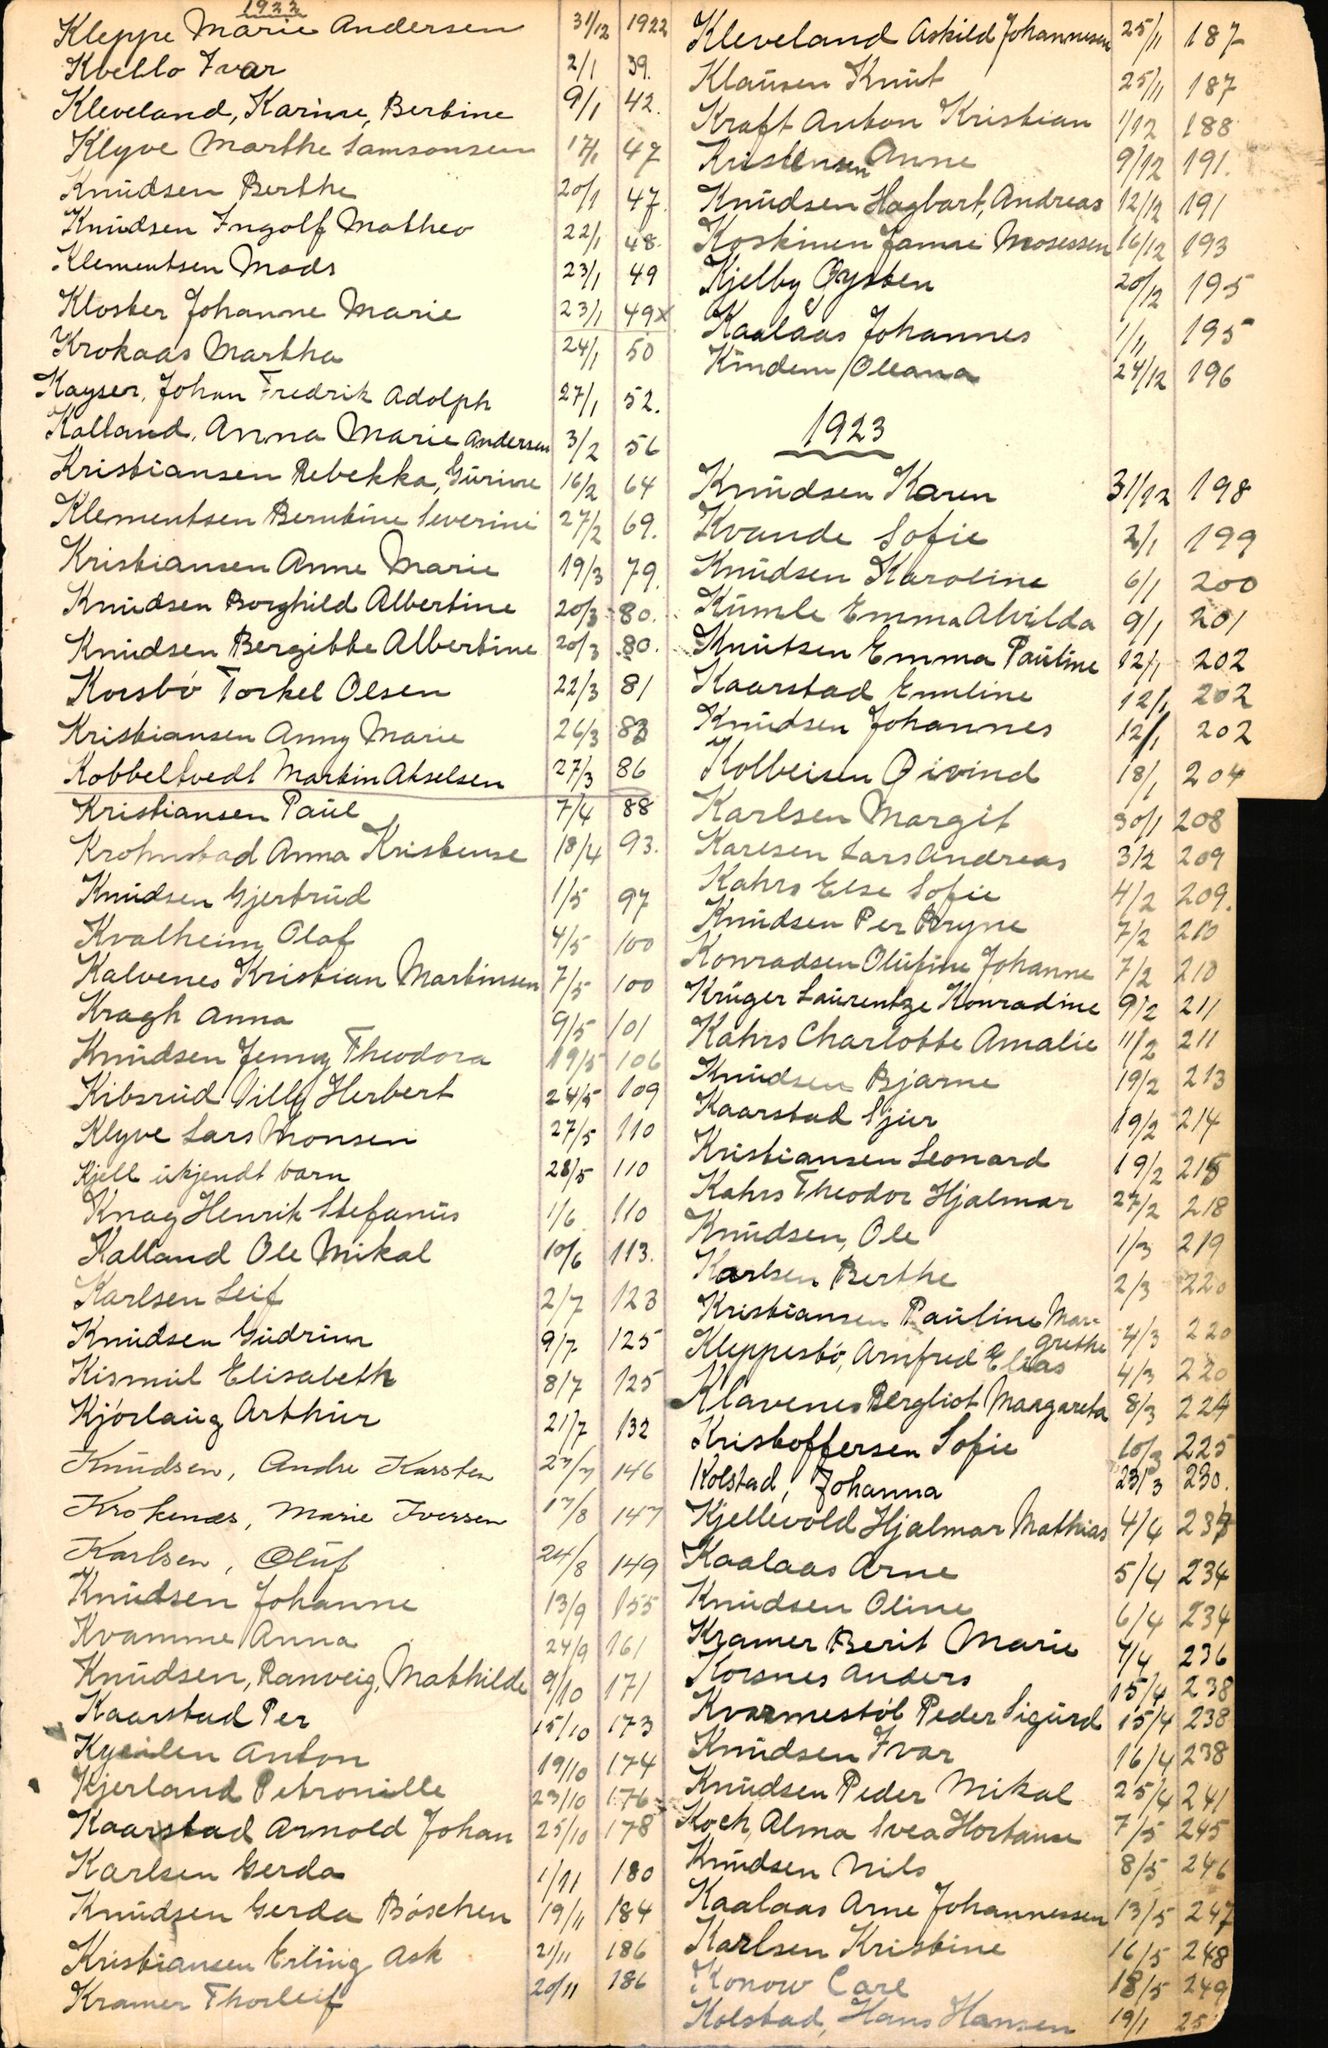 1922
Kleppe Marie Andersen 31/12 1922
Kvello Ivar 2/1 39.
Kleveland, Karine, Bertine 9/1 42.
Klyve Marthe Samsonsen 17/1 47
Knudsen Berthe 20/1 47.
Knudsen Ingolf Matheo 22/1 48.
Klementsen Mads 23/1 49
Kloster Johanne Marie 23/1 49x
Krokaas Martha 24/1 50
Kayser, Johan Fredrik Adolph 27/1 52.
Kalland, Anna Marie Andersen 3/2 56
Kristiansen Rebekka, Gurine 16/2 64
Klementsen Berntine Severini 27/2 69.
Kristiansen Anne Marie 19/3 79.
Knudsen Borghild Albertine 20/3 80.
Knudsen Bergitte Albertine 20/3 80.
Korsbö Torkel Olsen 22/3 81
Kristiansen Anny Marie 26/3 83
Kobbeltvedt Martin Akselsen 27/3 86
Kristiansen Paul 7/4 88
Krohnstad Anna Kristense 18/4 93.
Knudsen Gjertrud 1/5 97
Kvalheim Olaf 4/5 100
Kalvenes Kristian Martinsen 7/5 100
Kragh Anna 9/5 101
Knudsen Jenny Theodora 19/5 106
Kibsrud Villy Herbert 24/5 109
Klyve Lars Monsen 27/5 110
Kjell ukjendt barn 28/5 110
Knag Henrik Stefanus 1/6 110
Kalland Ole Mikal 10/6 113.
Karlsen Leif 2/7 123
Knudsen Gudrun 9/7 125
Kismul Elisabeth 8/7 125
Kjörlaug Arthur 21/7 132
Knudsen, Andre Karsten 27/7 146
Krokenes, Marie Iversen 17/8 147
Karlsen, Oluf 24/8 149
Knudsen Johanne 13/9 155
Kvamme Anna 24/9 161
Knudsen, Ranveig, Mathilde 9/10 171
Kaarstad Per 15/10 173
Kyeilen Anton 19/10 174
Kjerland Petronille 23/10 176
Kaarstad Arnold Johan 25/10 178
Karlsen Gerda 1/11 180
Knudsen Gerda Böschen 19/11 184
Kristiansen Erling Ask 21/11 186
Kramer Thorleif 20/11 186
Kleveland Askild Johannesen 25/11 187
Klausen Knut 25/11 187
Kraft Anton Kristian 1/12 188
Kristensen Anne 9/12 191.
Knudsen Hagbart, Andreas 12/12 191
Koskinen Jamse Mosessen 16/12 193
Kjelby Öysten 20/12 195
Kaalaas Johannes 1/11 195
Kindem Oleana 24/12 196
1923
Knudsen Karen 31/12 198
Kvande Sofie 2/1 199
Knudsen Karoline 6/1 200
Kumle Emma Alvilda 9/1 201
Knutsen Emma Pauline 12/1 202
Kaarstad Emeline 12/1 202
Knudsen Johannes 12/1 202
Kolbeisen Öivind 18/1 204
Karlsen Margit 30/1 208
Karlsen Lars Andreas 3/2 209
Kahrs Else Sofie 4/2 209.
Knudsen Per Bryne 7/2 210
Konradsen Olufine Johanne 7/2 210
Krüger Laurentze Konradine 9/2 211
Kahrs Charlotte Amalie 11/2 211
Knudsen Bjarne 19/2 213
Kaarstad Sjur 19/2 214
Kristiansen Leonard 19/2 215
Kahrs Theodor Hjalmar 27/2 218
Knudsen, Ole 1/3 219
Karlsen Berthe 2/3 220
Kristiansen Pauline Margrethe 4/3 220
Kleppestö, Arnfred Elias 4/3 220
Klavenes Bergliot Margareta 8/3 224
Kristoffersen Sofie 10/3 225
Kolstad, Johanna 23/3 230.
Kjellevold Hjalmar Mathias 4/4 234
Kaalaas Arne 5/4 234
Knudsen Oline 6/4 234
Kramer Berit Marie 7/4 236
Korsnes Anders 15/4 238
Kvarmestöl Peder Sigurd 15/4 238
Knudsen Ivar 16/4 238
Knudsen Peder Mikal 25/4 241
Koch, Alma Svea Hortanse 7/5 245
Knudsen Nils 8/5 246
Kaalaas Arne Johannessen 13/5 247
Karlsen Kristine 16/5 248
Konow Carl 18/5 249
Kolstad, Hans Hansen 19/1 25